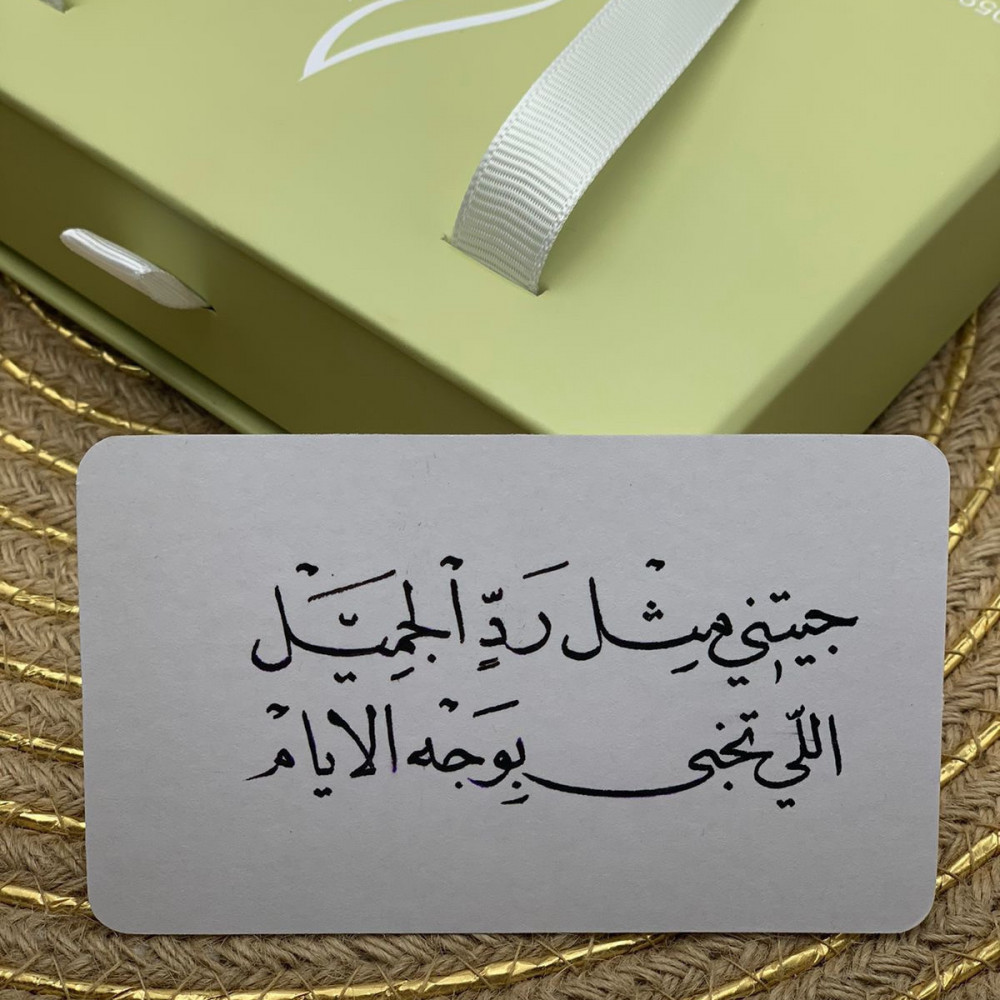 جيتني مِثْل رَدِّ الْجَمِيَّلْ
اللّي تخبى بِوَجْه الايامْ